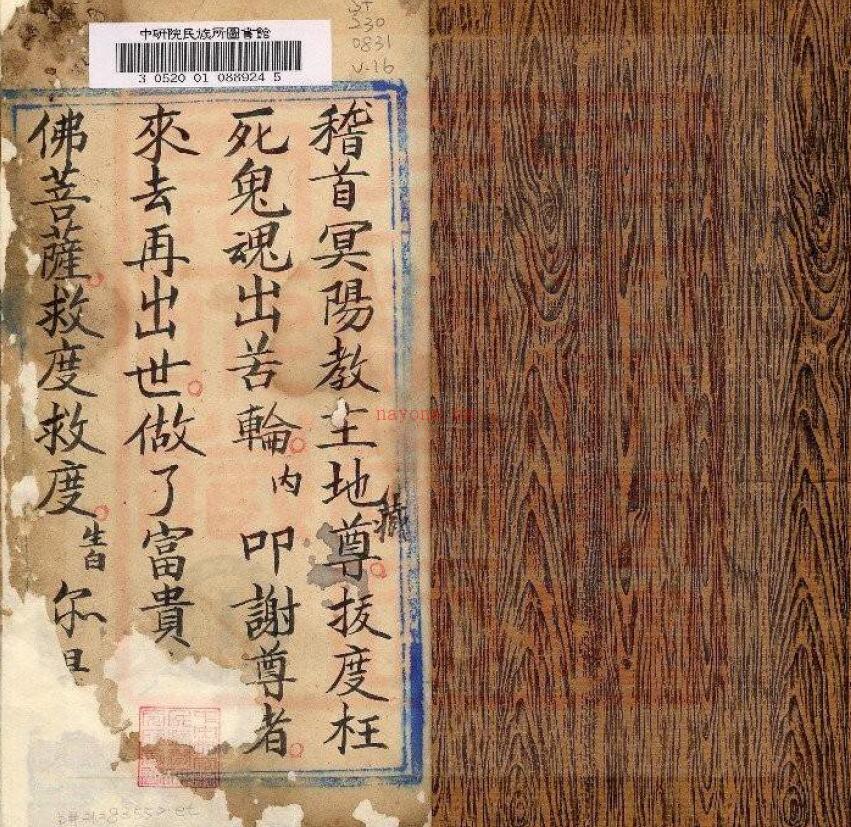 中研院民族所圖書館
3 0520 01 088924 5
ST
530
0831
V-16
稽首冥陽教主地藏尊。拔度枉
死鬼魂出苦輪。內 叩謝尊者。
來去再出世。做了富貴
佛菩薩。救度救度。生白 尓
nayona.cn